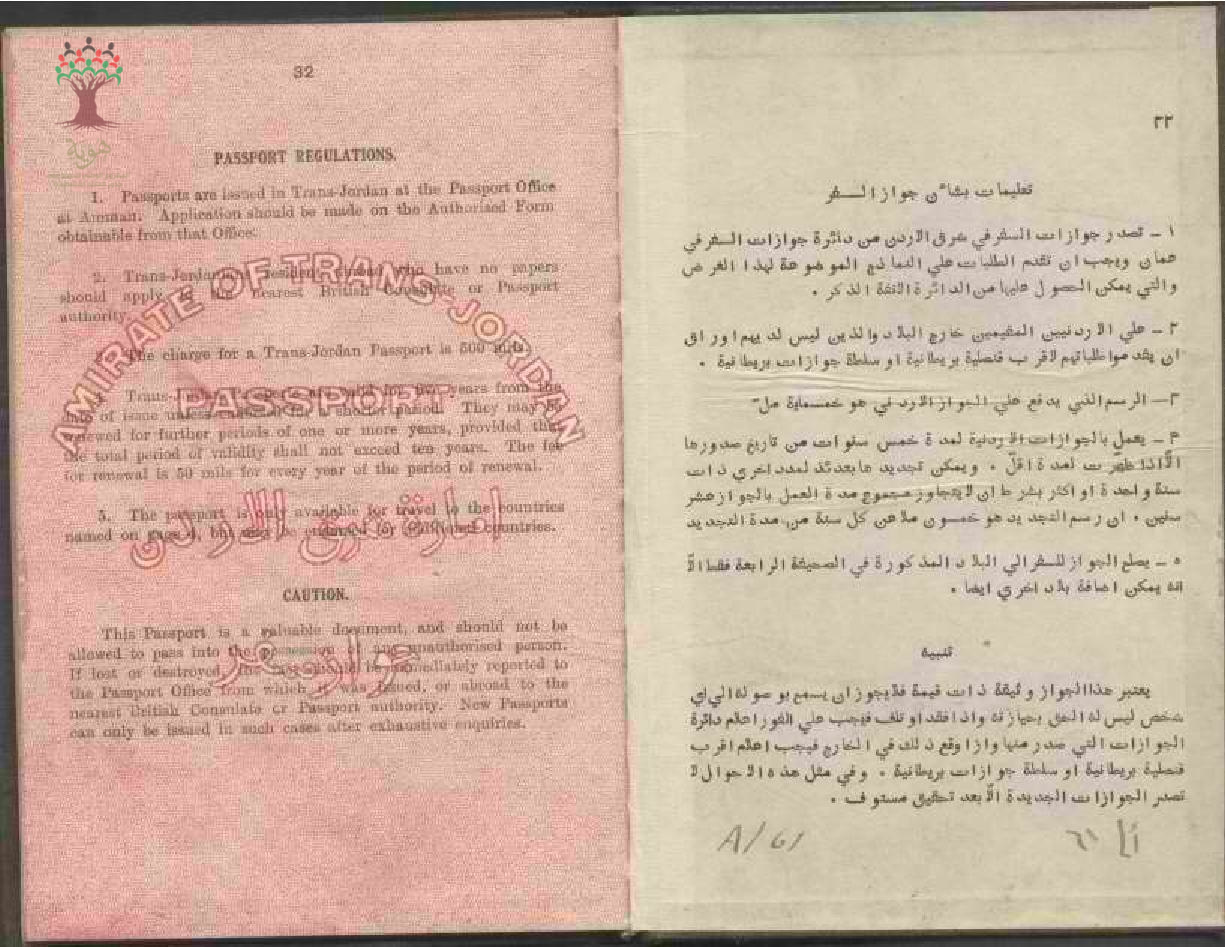 هوية
32
PASSPORT REGULATIONS.
1. Passports are issued in Trans-Jordan at the Passport Office
at Amman. Application should be made on the Authorised Form
obtainable from that Office.
2. Trans-Jordanians resident abroad who have no papers
should apply to the nearest British Consulate or Passport
authority.
3. The charge for a Trans-Jordan Passport is 500 mils.
4. Trans-Jordan are valid for five years from the
date of issue unless for a shorter period. They may be
renewed for further periods of one or more years, provided that
the total period of validity shall not exceed ten years. The fee
for renewal is 50 mils for every year of the period of renewal.
5. The passport is only available for travel to the countries
named on page 4, but may be for additional countries.
CAUTION.
This Passport is a valuable document, and should not be
allowed to pass into the possession of any unauthorised person.
If lost or destroyed, the should be immediately reported to
the Passport Office from which it was issued, or abroad to the
nearest British Consulate or Passport authority. New Passports
can only be issued in such cases after exhaustive enquiries.
AMIRATE OF TRANS-JORDAN
PASSPORT
امارة شرق الاردن
جواز سفر
٣٢
تعليمات بشأن جواز السفر
١ ـ تصدر جوازات السفر في شرق الاردن من دائرة جوازات السفر في
عمان ويجب ان تقدم الطلبات علي النماذج الموضوعة لهذا الغرض
والتي يمكن الحصول عليها من الدائرة الانفة الذكر .
٢ ـ علي الاردنيين المقيمين خارج البلاد والذين ليس لديهم اوراق
ان يقدموا طلباتهم لاقرب قنصلية بريطانية او سلطة جوازات بريطانية .
٣ ـ الرسم الذي يدفع علي الجواز الاردني هو خمسماية مل
٤ ـ يعمل بالجوازات الاردنية لمدة خمس سنوات من تاريخ صدورها
الّا اذا ظهّرت لمدة اقلّ . ويمكن تجديدها بعدئذ لمدد اخري ذات
سنة واحدة او اكثر بشرط ان لا يتجاوز مجموع مدة العمل بالجواز عشر
سنين . ان رسم التجديد هو خمسون ملا عن كل سنة من مدة التجديد
٥ ـ يصلح الجواز للسفر الي البلاد المذكورة في الصحيفة الرابعة فقط الّا
انه يمكن اضافة بلاد اخري ايضا .
تنبيه
يعتبر هذا الجواز وثيقة ذات قيمة فلا يجوز ان يسمح بوصوله الي اي
شخص ليس له الحق بحيازته واذا فقد او تلف فيجب علي الفور اعلام دائرة
الجوازات التي صدر منها واذا وقع ذلك في الخارج فيجب اعلام اقرب
قنصلية بريطانية او سلطة جوازات بريطانية . وفي مثل هذه الاحوال لا
تصدر الجوازات الجديدة الّا بعد تحقيق مستوف .
A/61
أ/ ٦١